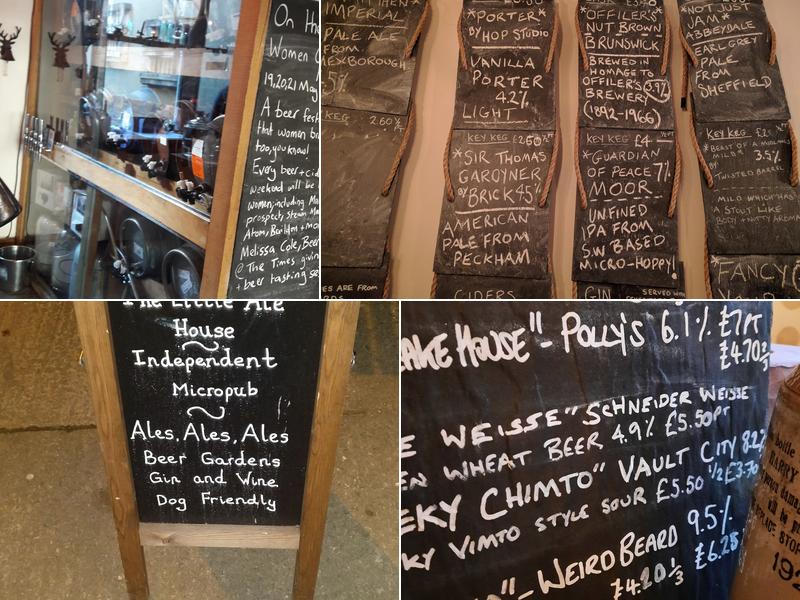 On the
Women
19,20,21 May
A beer fest
that women
too, you know!
Every beer + cid
weekend will be
women, including
prospect, Steam
Atom,
Melissa Cole, Beer
@ The Times
+ beer tasting
IMPERIAL
PALE ALE
FROM
MEXBOROUGH
5%
KEG 2.60
ES ARE FROM
*PORTER*
BY HOP STUDIO
VANILLA
PORTER
4.2%
LIGHT
KEY KEG £2.60
*SIR THOMAS
GARDYNER
BY BRICK 4.5%
AMERICAN
PALE FROM
PECKHAM
CIDERS
*OFFILER'S
NUT BROWN
BRUNSWICK
BREWED IN
HOMAGE TO
OFFILER'S
BREWERY 3.9%
(1892-1966)
KEY KEG £4
*GUARDIAN
OF PEACE 7%
MOOR
UNFINED
IPA FROM
S.W BASED
MICRO-HOPPY!
GIN SERVED
JAM*
ABBEYDALE
EARL GREY
PALE
FROM
SHEFFIELD
KEY KEG £2
*BEAST OF A MIDLANDS
MILD* 3.5%
BY
TWISTED BARREL
MILD WHICH HAS
A STOUT LIKE
BODY + NUTTY AROMA
*FANCY
The Little Ale
House
Independent
Micropub
Ales, Ales, Ales
Beer Gardens
Gin and Wine
Dog Friendly
AKE HOUSE" - POLLY'S 6.1% £7/PT
£4.70 2/3
E WEISSE" SCHNEIDER WEISSE
EN WHEAT BEER 4.9% £5.50PT
EKY CHIMTO" VAULT CITY 8.2%
KY VIMTO STYLE SOUR £5.50 1/2 £3.70
"- WEIRD BEARD 9.5%
£4.20 1/3 £6.25